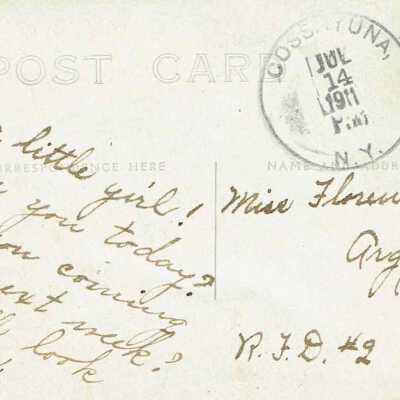 POST CARD
COSSAYUNA,
JUL
14
1911
P.M
N.Y.
CORRESPONDENCE HERE
NAME AND ADDRESS
little girl!
you today?
coming
next week?
look
Miss Floren
Arg
R.F.D. #2